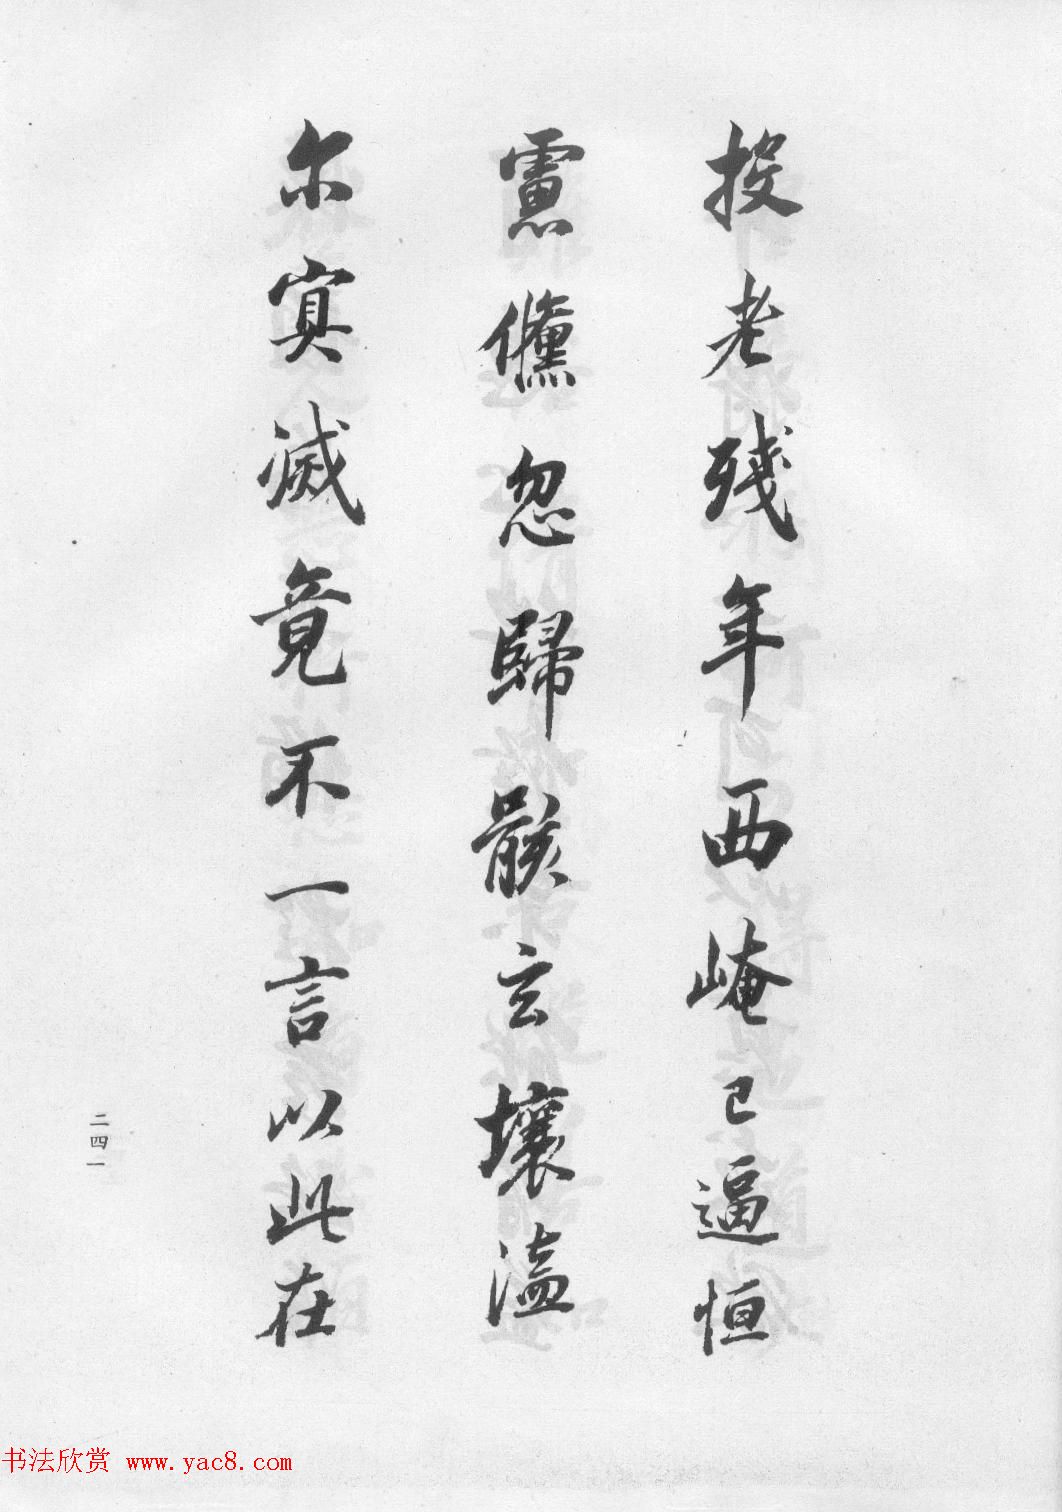 投老残年西崦已逼恒
慮儵忽歸骸玄壤溘
尔寘滅竟不一言以此在
二四一
书法欣赏 www.yac8.com